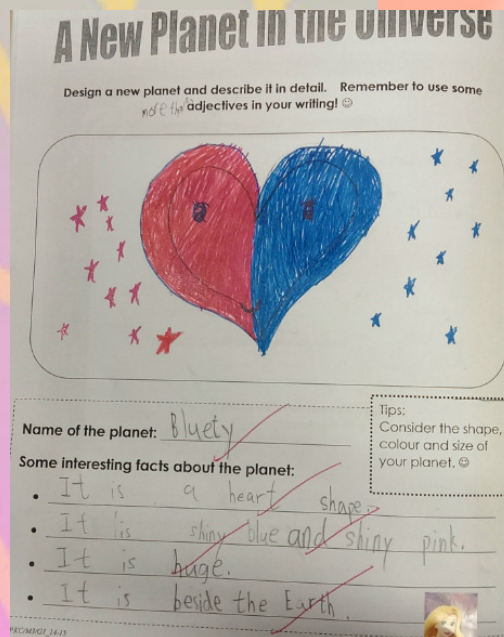 A New Planet in the Universe
Design a new planet and describe it in detail. Remember to use some
more than adjectives in your writing! ☺
Tips:
Consider the shape,
colour and size of
your planet. ☺
Name of the planet: Bluety
Some interesting facts about the planet:
• It is a heart shape.
• It is shiny blue and shiny pink.
• It is huge.
• It is beside the Earth.